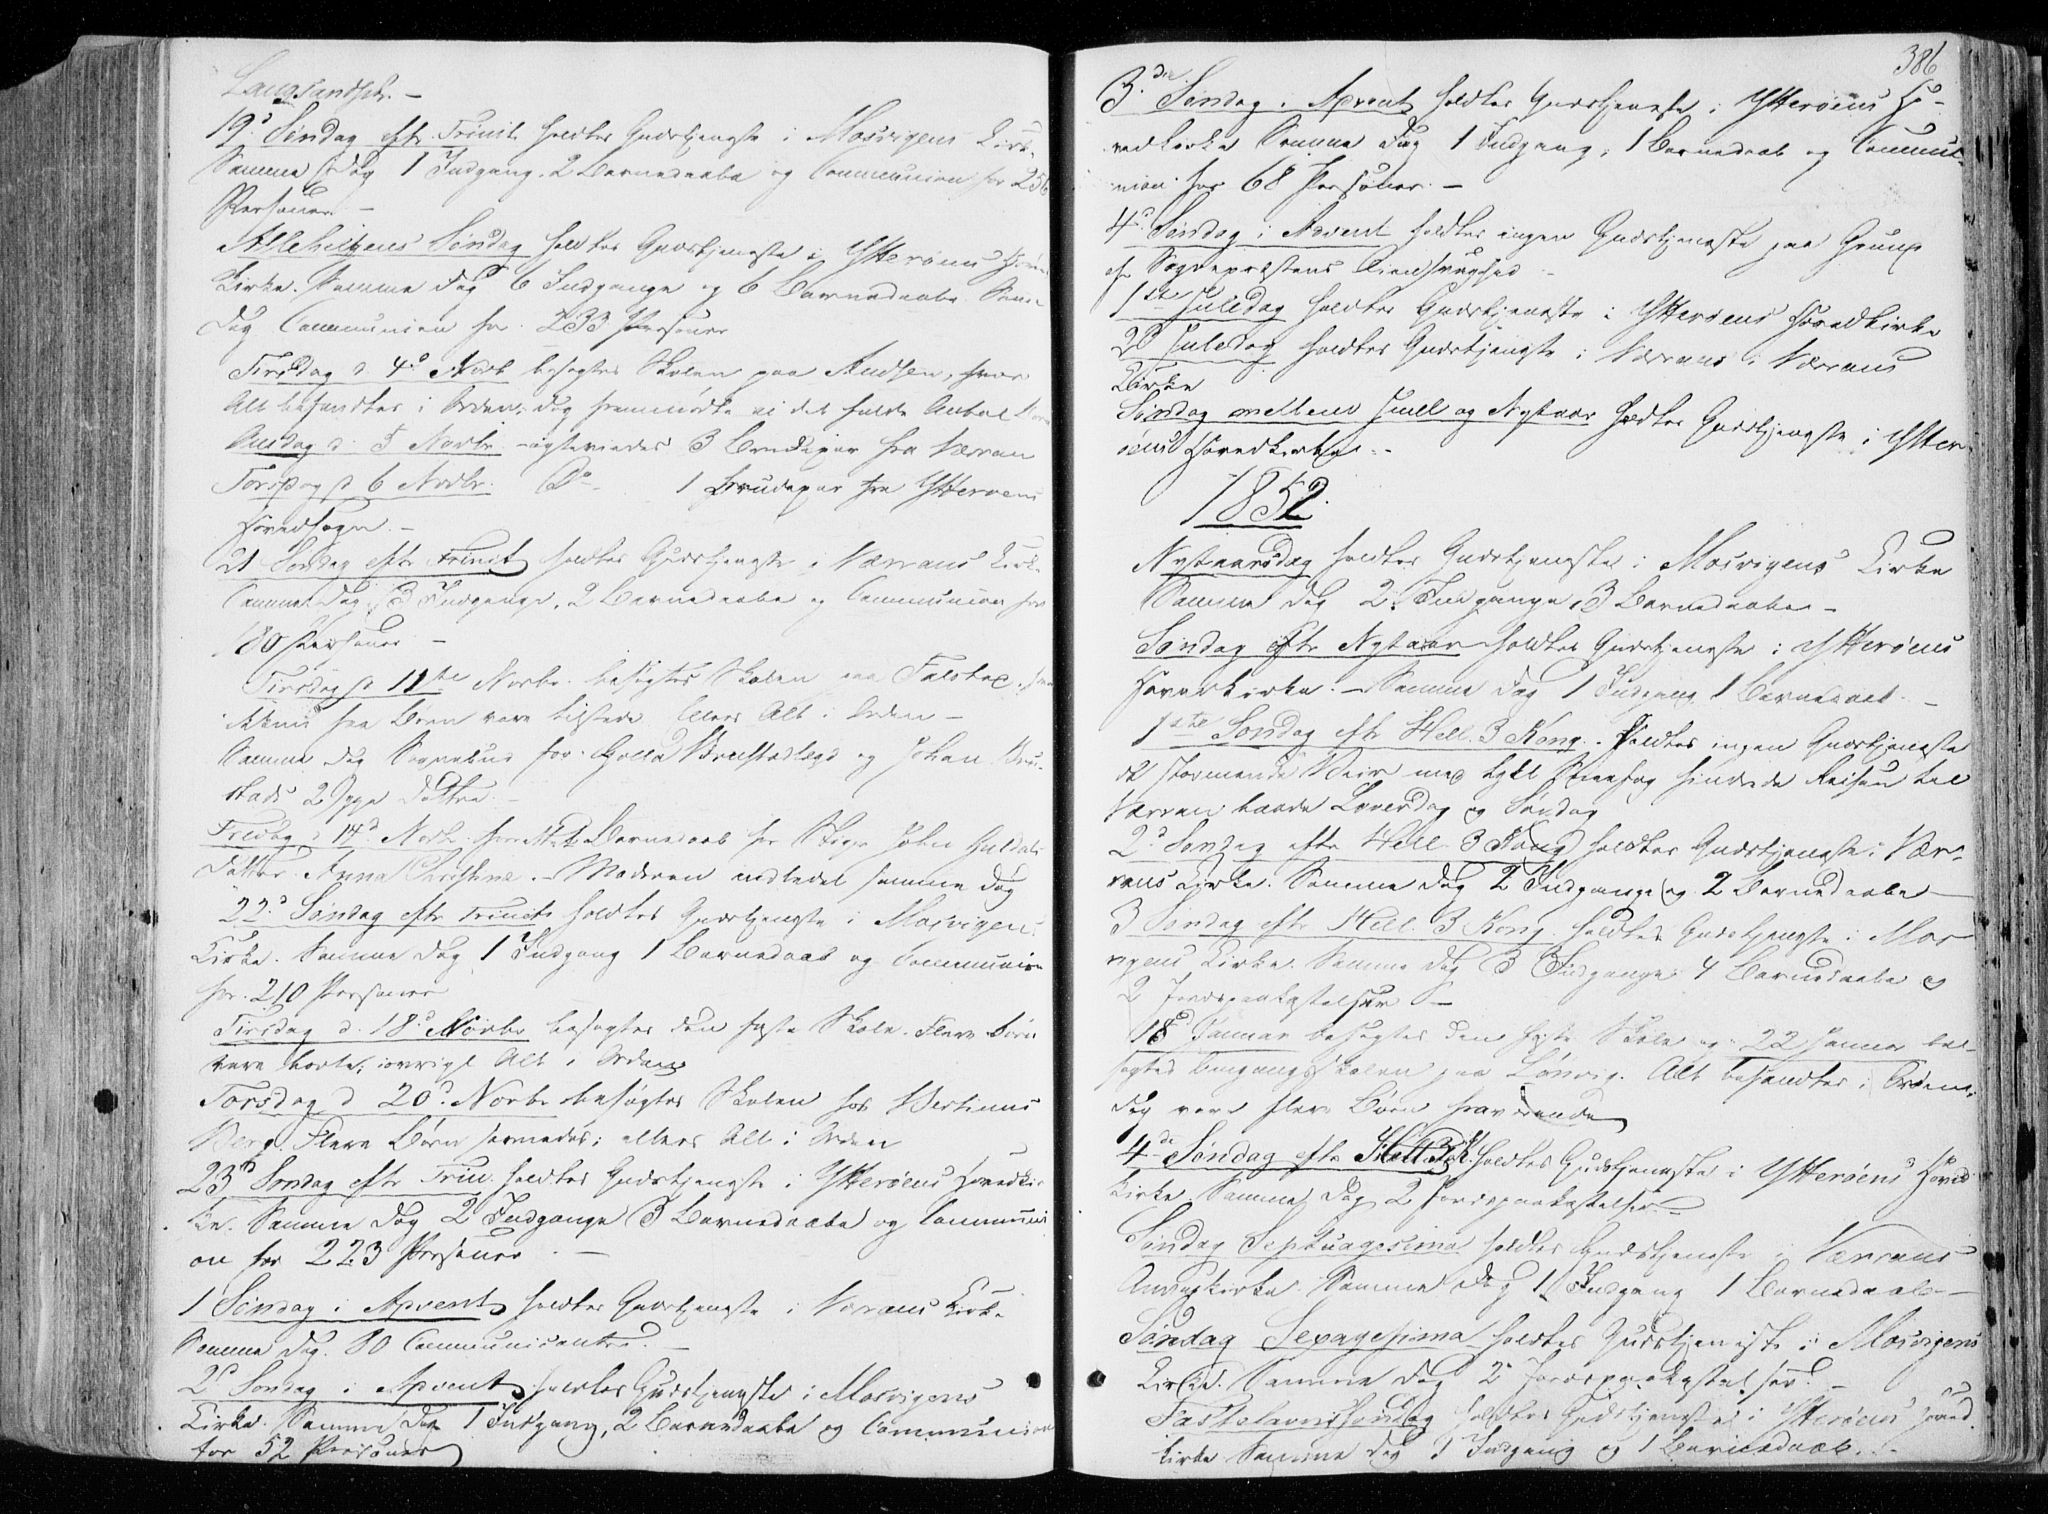 19d Søndag eftr Trinit. holdtes Gudstjeneste i Mosvigens Kirke.
Samme Dag 1 Indgang, 2 Barnedaabe og Communion for 256
Personer. –
Allehelgens Søndag holdtes Gudstjeneste i Ytterøens Hoved
Kirke. Samme Dag 6 Indgange og 6 Barnedaabe. Samme
Dag Communion for 233 Personer
Tirsdag d 4d Novb besøgtes Skolen paa
Alt befandtes i Orden; dog fremmødte ei det fulde Antal Børn
Onsdag d 5 Novbr. ægteviedes 3 Brudepar fra Værran
Torsdag d 6 Novbr. Do 1 Brudepar fra Ytterøens
Hovedsogn. –
21 Søndag eftr Trinit holdtes Gudstjeneste i Værrans Kirke
Samme Dag 3 Indgange, 2 Barnedaabe og Communion for
180 Personer –
Tirsdag d 11te Novbr. besøgtes Skolen paa
fra Børn vare tilstede. Ellers Alt i Orden –
Samme Dag Sognebud for og Johan
stads 2 Døttre. –
Fredag d 14d Novbr. forrettet Barnedaab for John
Datter Anna Christine. – Moderen indledet samme Dag
22d Søndag eftr Trinit holdtes Gudstjeneste i Mosvigens
Kirke. Samme Dag 1 Indgang 1 Barnedaab og Communion
for 210 Personer
Tirsdag d. 18d Novbr besøgtes den faste Skole. Flere Børn
vare borte; iøvrigt Alt i Orden
Torsdag d 20d Novbr besøgtes Skolen hos Bertinus
Berg. Flere Børn savnedes; ellers Alt i Orden
23d Søndag eftr Trin. holdtes Gudstjeneste i Ytterøens Hovedkir-
ke. Samme Dag 2 Indgange 3 Barnedaabe og Communi
on for 223 Personer. –
1 Søndag i Advent holdtes Gudstjeneste i Værrans Kirke
Samme Dag 80 Communicantre. –
2d Søndag i Advent holdtes Gudstjeneste i Mosvigens
Kirke. Samme Dag 1 Indgang, 2 Barnedaabe og Communion
for 52 Personer
386
3die Søndag i Advent holdtes Gudstjeneste i Ytterøens Ho-
vedkirke Samme Dag 1 Indgang, 1 Barnedaab og Commu-
nion for 68 Personer. –
4d Søndag i Advent holdtes ingen Gudstjeneste paa Grund
af Sognepræstens Øiensvaghed –
1ste Juledag holdtes Gudstjeneste i Ytterøens Hovedkirke
2d Juledag holdtes Gudstjeneste i Værrans
Kirke
Søndag mellem Juul og Nytaar holdtes Gudstjeneste i Ytter-
øens Hovedkirke. –
1852.
Nytaarsdag holdtes Gudstjeneste i Mosvigens Kirke
Samme Dag 2 Indgange, 3 Barnedaabe –
Søndag eftr Nytaar holdtes Gudstjeneste i Ytterøens
Hovedkirke. – Samme Dag 1 Indgang 1 Barnedaab. –
1ste Søndag eftr Hell. 3 Kong. holdtes ingen Gudstjeneste
da stormende Veir med tykt Sneefog hindrede Reisen til
Værran baade Løverdag og Søndag
2d Søndag eftr Hell. 3 Kong holdtes Gudstjeneste i Vær-
rans Kirke. Samme Dag 2 Indgange og 2 Barnedaabe –
3 Søndag eftr Hell. 3 Kong. holdtes Gudstjeneste i Mos
vigens Kirke. Samme Dag 3 Indgange 4 Barnedaabe og
2 Jordspaakastelser –
18d Januar besøgtes den faste Skole og 22 Januar be-
søgtes Omgangsskolen paa Lønvig. Alt befandtes i Orden;
dog vare flere Børn fraværende
4de Søndag eftr Hell 3 K. holdtes Gudstjeneste i Ytterøens Hoved
kirke. Samme Dag 2 Jordspaakastelser –
Søndag Septuagesima holdtes Gudstjeneste i Værrans
Annexkirke. Samme Dag 1 Indgang 1 Barnedaab –
Søndag Sexagesima holdtes Gudstjeneste i Mosvigens
Kirke. Samme Dag 2 Jordspaakastelser. –
Fastelavnssøndag holdtes Gudstjeneste i Ytterøens Hoved
kirke Samme Dag 1 Indgang og 1 Barnedaab. –